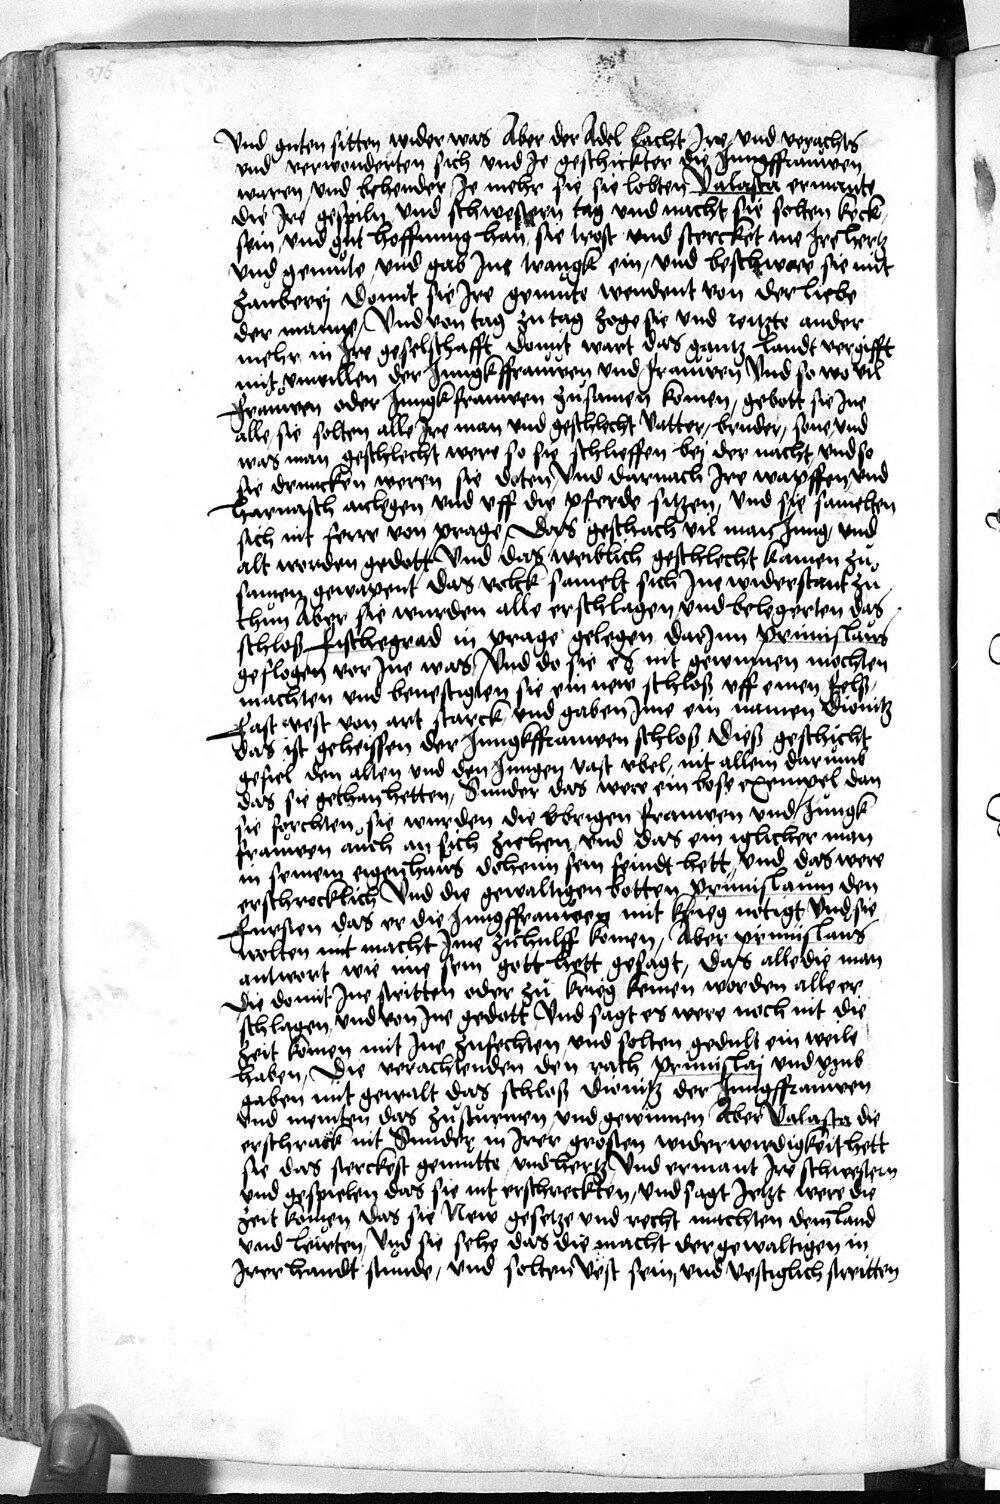 Vnd guten sitten wider was Aber der Adel lacht Ire vnd verachts
vnd verwonderten sich vnd Ie geschickter die Jungffrauwen
waren vnd behender Ie mehr sie sie lobten Valasca ermante
die Ire gespiln vnd schwestern tag vnd nacht sie solten keck
sein vnd gut hoffnung han, sie trost vnd stercket ine Ire hertz
vnd gemute vnd gab Ine trangk ein, vnd beschware sie mit
zauberei Domit sie Ire gemute wendent von der liebe
der manne, Vnd von tag zu tag zoge sie vnd reitzte ander
mehr in Ire geselschafft domit wart das gantz landt vergifft
mit vnwillen der Jungkffrauwen vnd frauwen Vnd so wo vil
frauwen oder Jungkfrauwen zusamen komen, gebott sie Ine
alle sie solten alle Ire man vnd geschlecht vatter, bruder, sone vnd
was man geschlecht were so sie schlieffen bei der nacht, vnd so
sie druncken weren sie doten, Vnd darnach Ire wapffen vnd
harnasch anlegen vnd vff die pferde sitzen, vnd sie samelten
sich nit ferre von prage, Das geschach vil man Jung vnd
alt worden gedott Vnd das weiblich geschlecht kamen zu
samen gewapent das volck samelt sich Ine widerstant zu
thun Aber sie wurden alle erschlagen vnd belegerten das
schloß fischegrad in prage gelegen darInn primislaus
geflogen vor Ine was, Vnd do sie es nit gewinnen mochten
machten vnd beuestigten sie ein new schloß vff einen felß
fast vest von art starck vnd gaben Ime ein namen Dionitz
das ist geheissen der Jungkffrauwen schloß Dieß geschicht
gefiel den alten vnd den Jungen vast vbel, nit allein darumb
das sie gethan hetten, Sunder das were ein bose exempel dan
sie forchten sie wurden die vbrigen frauwen vnd Jungk
frauwen auch an sich ziehen, vnd das ein iglicher man
in seinem eigen haus doheim sein feindt hett, vnd das were
erschrocklich Vnd die gewaltigen botten primislaum den
fursten das er die Jungffrauwen mit krieg nötigt Vnd sie
wolten mit macht Ime zuhulff komen, Aber primislaus
antwort wie ime sein gott hett gesagt, das alle die man
die domit Ine stritten oder zu krieg kemen worden alle er
schlagen vnd von Ine gedott Vnd sagt es were noch nit die
zeit komen mit Ine zufechten, vnd solten gedult ein weile
haben, Die verachtenden den rath primislai vnd vmb
gaben mit gewalt das schloß dionitz der Jungffrauwen
vnd meinten das zu sturmen vnd gewinnen Aber Valasca die
erschrack nit Sunder in Irer grosten widerwirdigkeit hett
sie das sterckest gemutte vnd hertz, Vnd ermant Ire schwestern
vnd gespielen das sie nit erschreckten, vnd sagt Jetzt were die
zeit komen das sie New gesetze vnd recht machten dem land
vnd leuten, Vnd sie sehe das die macht der gewaltigen in
Irer handt stunde, vnd solten vest sein, vnd vestiglich stritten